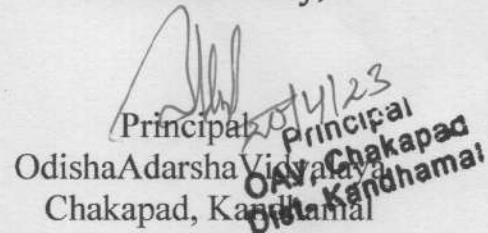 20/4/23
Principal
OdishaAdarshaVidyalaya
Chakapad, Kandhamal
Principal
OAV, Chakapad
Dist- Kandhamal